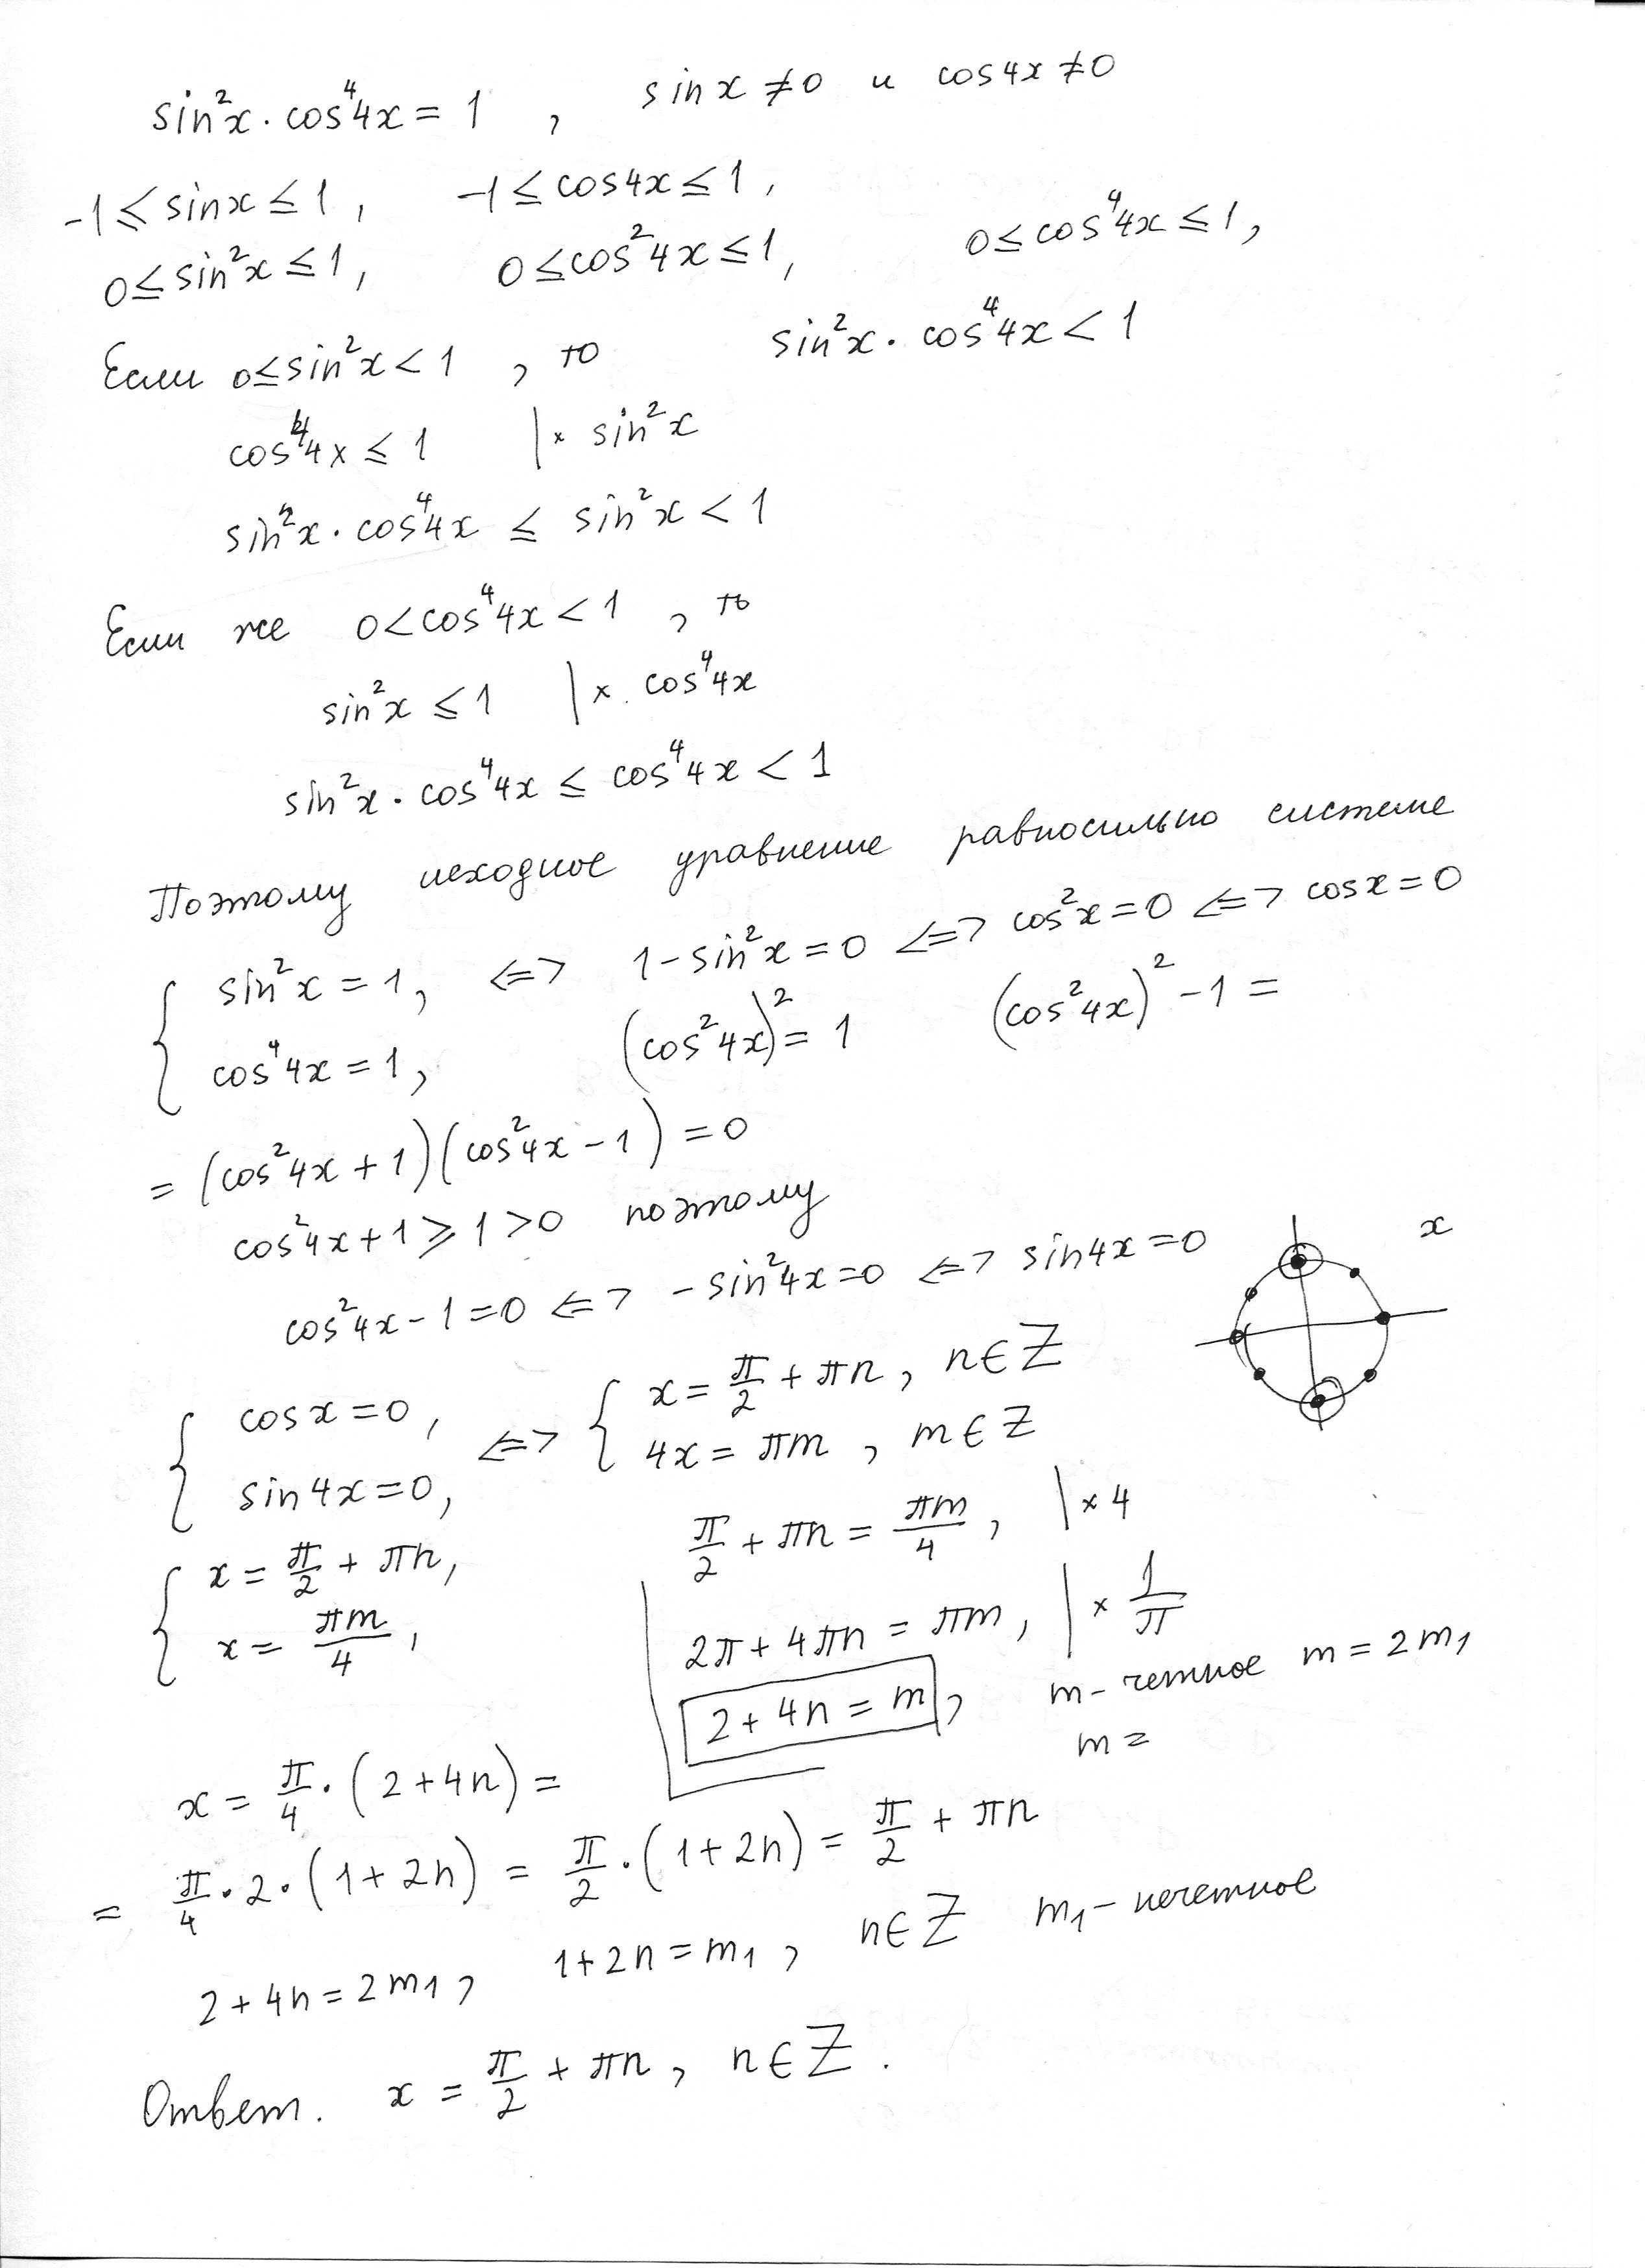 sin²x · cos⁴4x = 1 , sin x ≠ 0 и cos4x ≠ 0
-1 ≤ sinx ≤ 1, -1 ≤ cos4x ≤ 1,
0 ≤ sin²x ≤ 1, 0 ≤ cos²4x ≤ 1, 0 ≤ cos⁴4x ≤ 1,
Если 0 ≤ sin²x < 1 , то sin²x · cos⁴4x < 1
cos⁴4x ≤ 1 | × sin²x
sin²x · cos⁴4x ≤ sin²x < 1
Если же 0 < cos⁴4x < 1 , то
sin²x ≤ 1 | × cos⁴4x
sin²x · cos⁴4x ≤ cos⁴4x < 1
Поэтому исходное уравнение равносильно системе
{ sin²x = 1, <=> 1 - sin²x = 0 <=> cos²x = 0 <=> cosx = 0
cos⁴4x = 1, (cos²4x)² = 1 (cos²4x)² - 1 =
= (cos²4x + 1)(cos²4x - 1) = 0
cos²4x + 1 ≥ 1 > 0 поэтому
cos²4x - 1 = 0 <=> - sin²4x = 0 <=> sin4x = 0
x
{ cosx = 0, <=> { x = π/2 + πn, n ∈ Z
sin4x = 0, 4x = πm , m ∈ Z
{ x = π/2 + πn, π/2 + πn = πm/4 , | × 4
x = πm/4 , 2π + 4πn = πm, | × 1/π
2 + 4n = m , m - четное m = 2m₁
m =
x = π/4 · (2 + 4n) =
= π/4 · 2 · (1 + 2n) = π/2 · (1 + 2n) = π/2 + πn
2 + 4n = 2m₁, 1 + 2n = m₁, n ∈ Z m₁ - нечетное
Ответ. x = π/2 + πn, n ∈ Z .